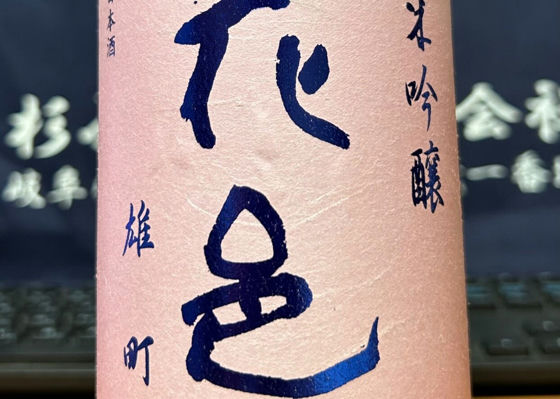 米吟醸
花邑
雄町
本酒
杉
会社
岐阜
一番